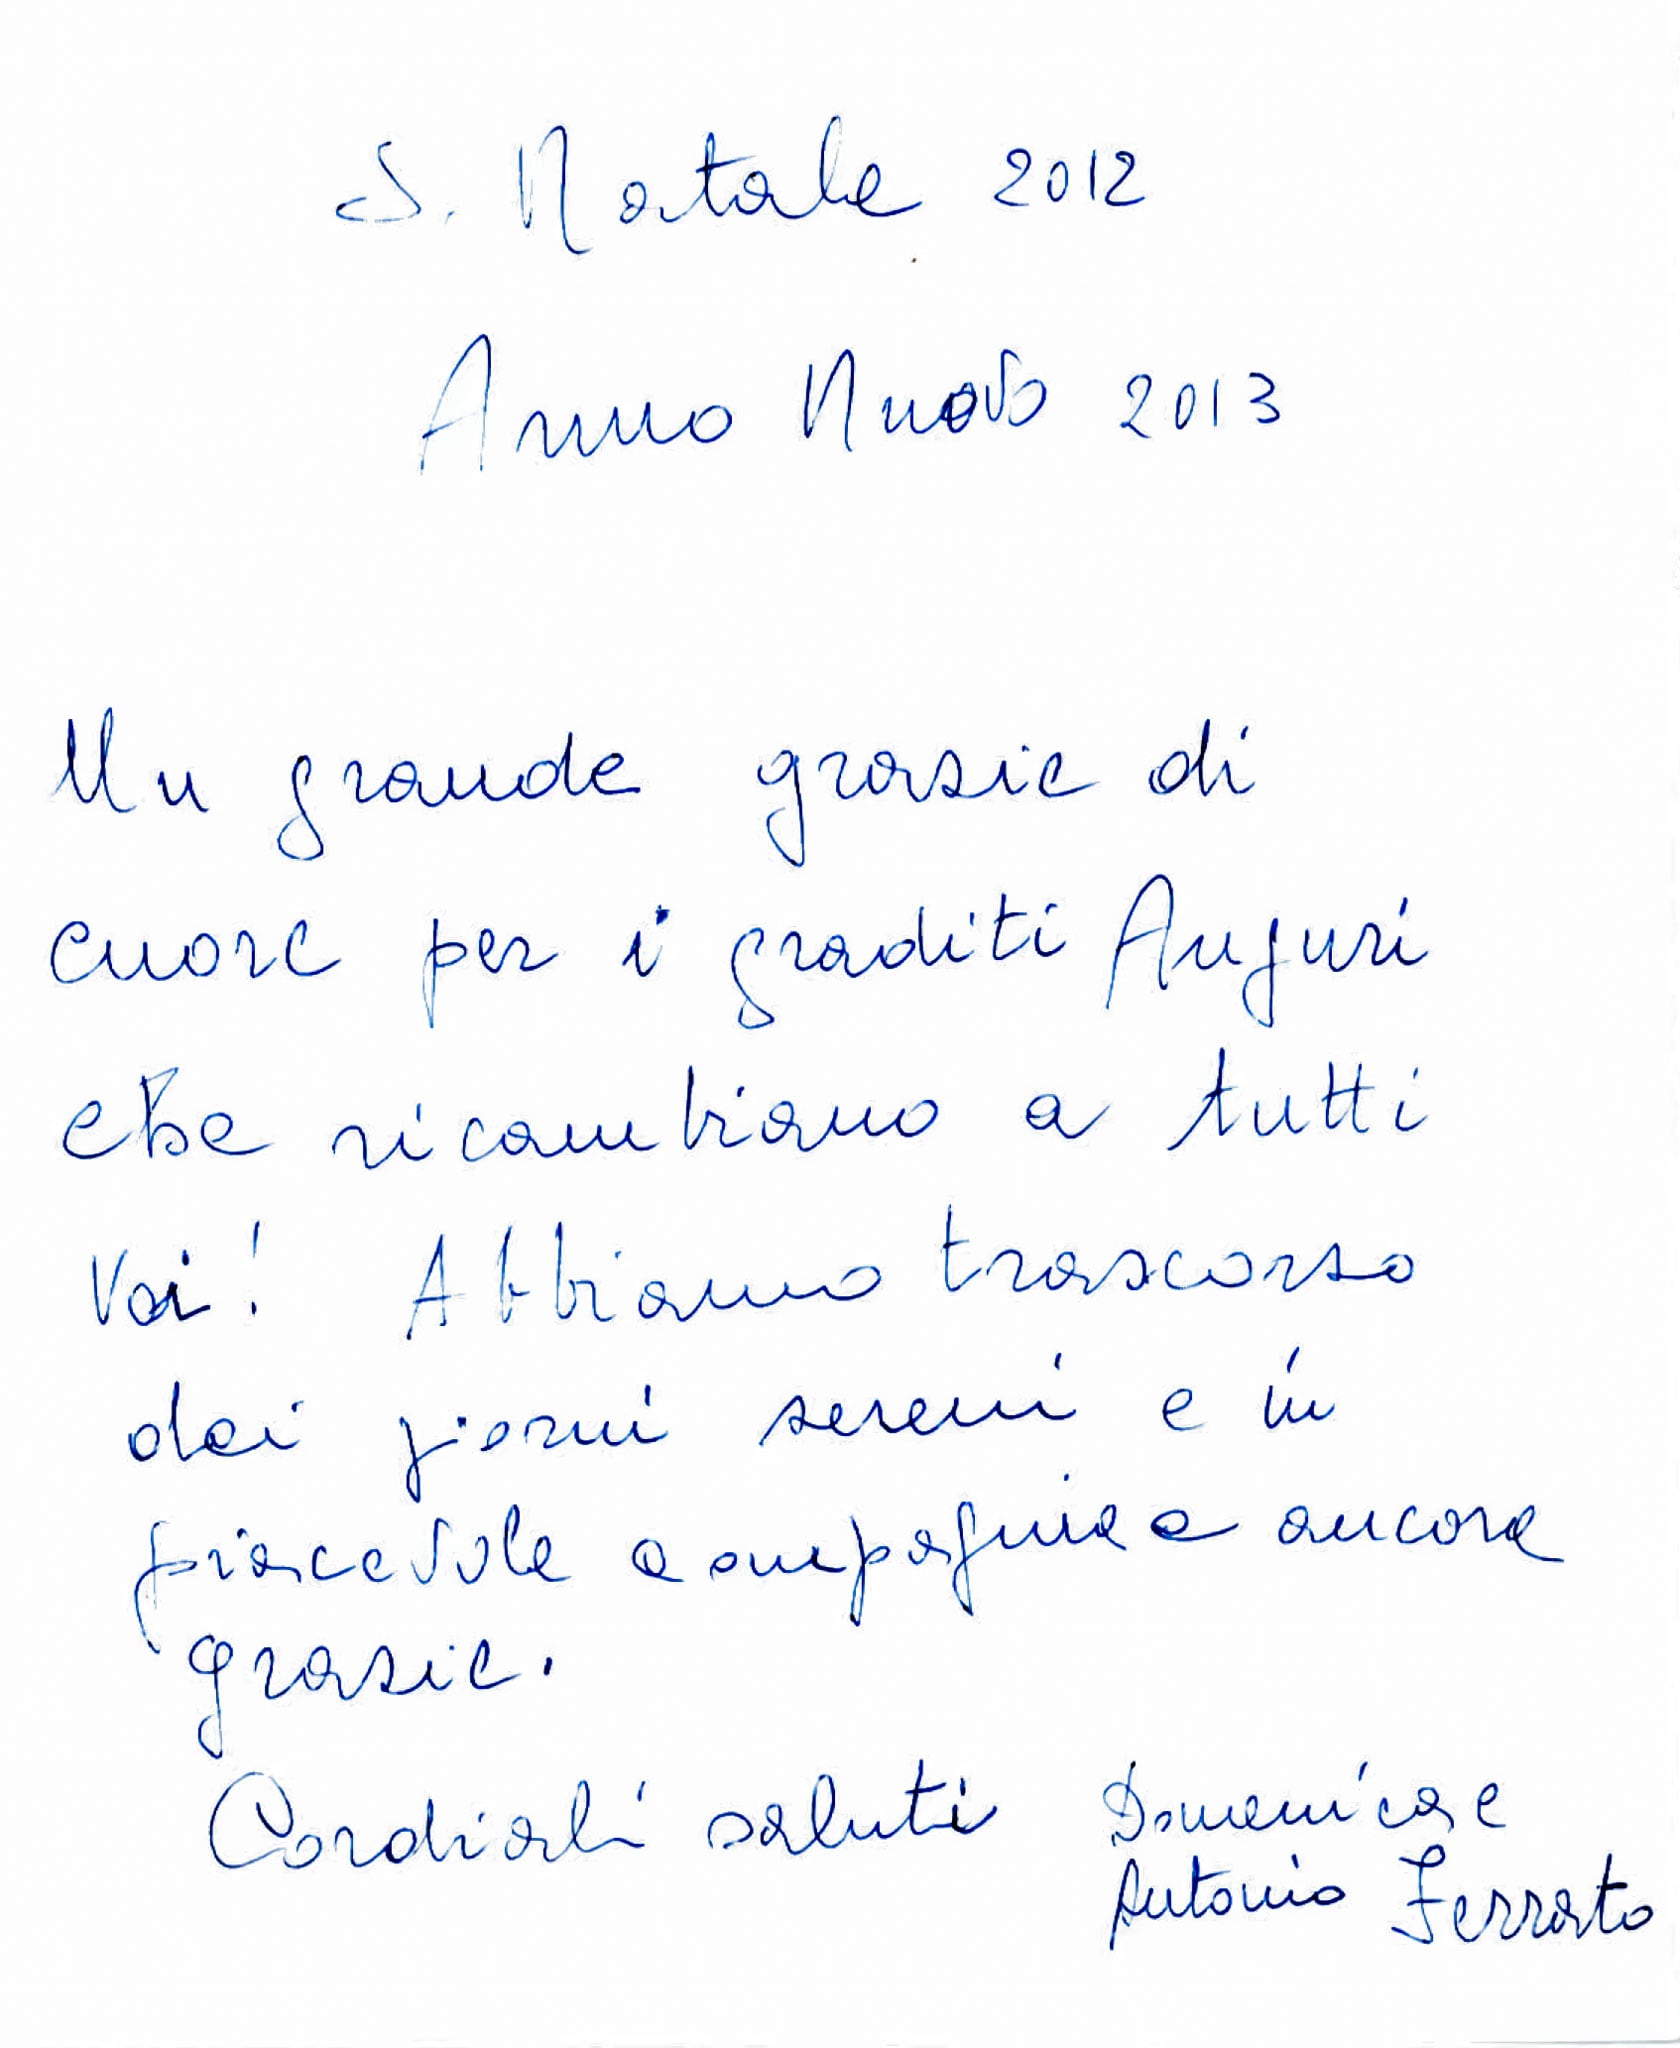 S. Natale 2012
Anno Nuovo 2013
Un grande grazie di
cuore per i graditi Auguri
che ricambiamo a tutti
Voi! Abbiamo trascorso
dei giorni sereni e in
piacevole compagnia e ancora
grazie.
Cordiali saluti Domenica e
Antonio Ferrato